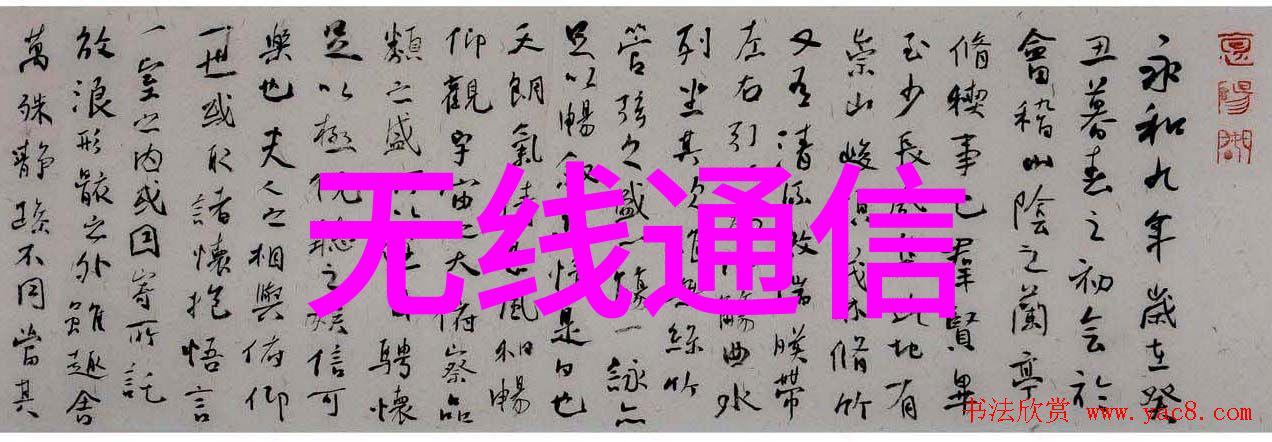 永和九年歲在癸
丑暮春之初会於
會稽山陰之蘭亭
脩稧事也群賢畢
至少長咸集此地有
崇山峻領茂林脩竹
又有清流激湍暎帶
左右引觴曲水
列坐其次絲竹
管弦之盛一觴一詠亦
足以暢敘情是日也
天朗氣清惠風和暢
仰觀宇宙之大俯察品
類之盛所以遊騁懷
足以極視聽之娛信可
樂也夫人之相與俯仰
一世或取諸懷抱悟言
一室之内或因寄所託
放浪形骸之外雖趣舍
萬殊靜躁不同當其
无线通信
书法欣赏 www.yac8.com